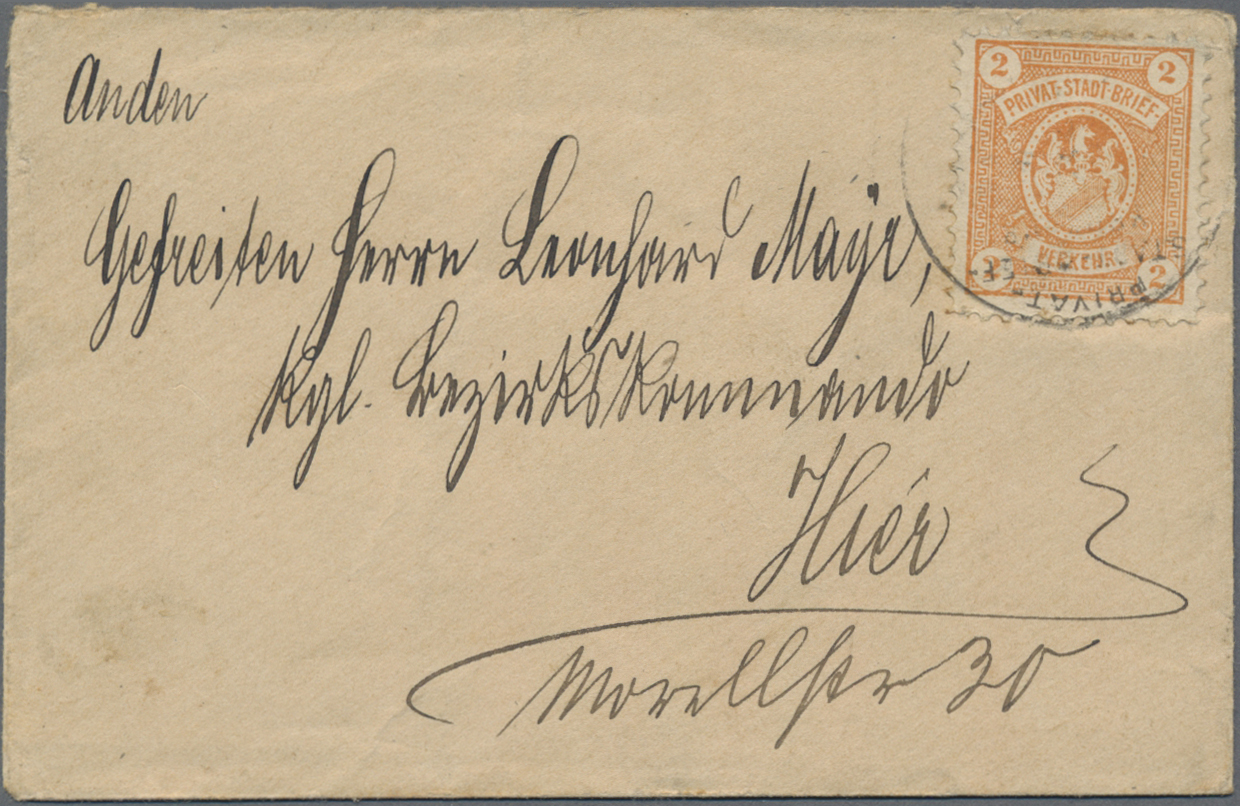 2 2
PRIVAT-STADT-BRIEF-
VERKEHR.
2 2
PRIVAT-
An den
Gefreiten Herrn Leonhard Mayr,
Kgl. Bezirkskommando
Hier
Morellstr 30